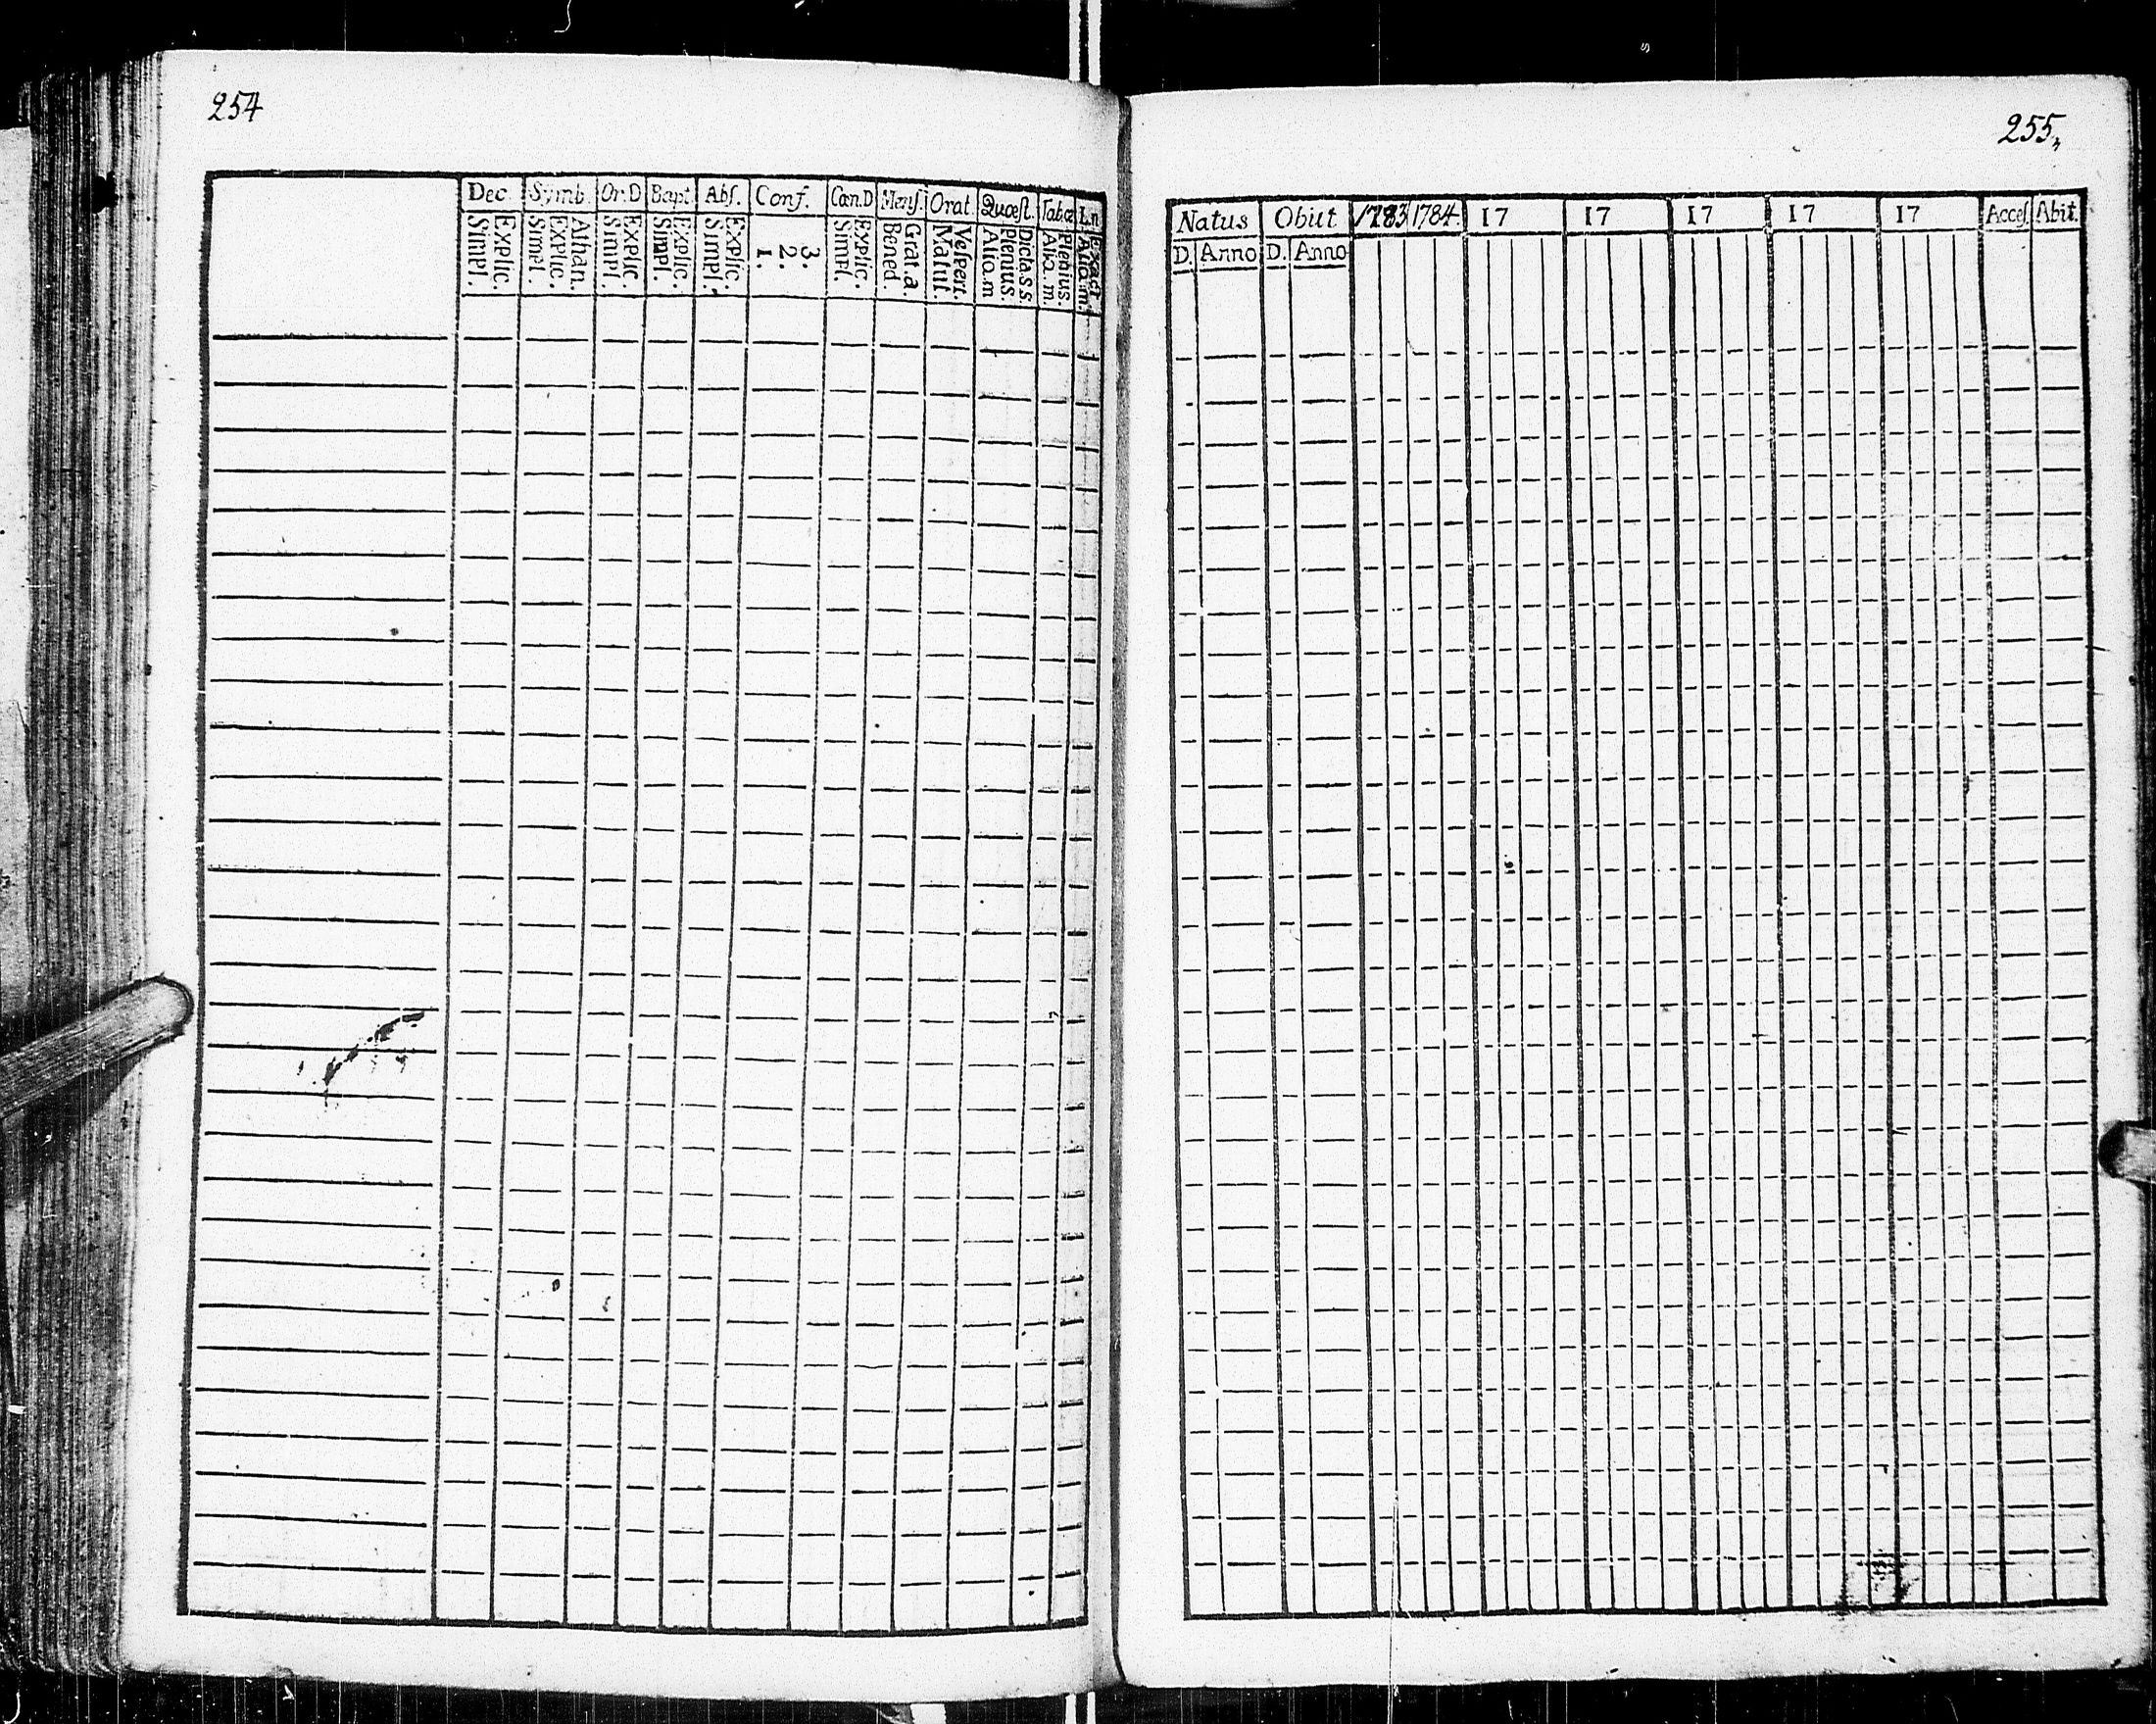 254
Dec. Symb. Or.D Bapt. Abſ. Conf. Cœn.D Menſ. Orat. Quœſt. Tabœ L.n
Simpl. Explic. Simpl. Explic. Athan. Simpl. Explic. Simpl. Explic. Simpl. Explic. 1. 2. 3. Simpl. Explic. Bened. Grat.a. Matut. Veſpert. Alio.m Plenius. Dicta.s.s. Alia.m. Plenius. Alia.m. Exact
255,
Natus Obiit 1783 1784 17 17 17 17 17 Acceſ. Abit.
D. Anno D. Anno